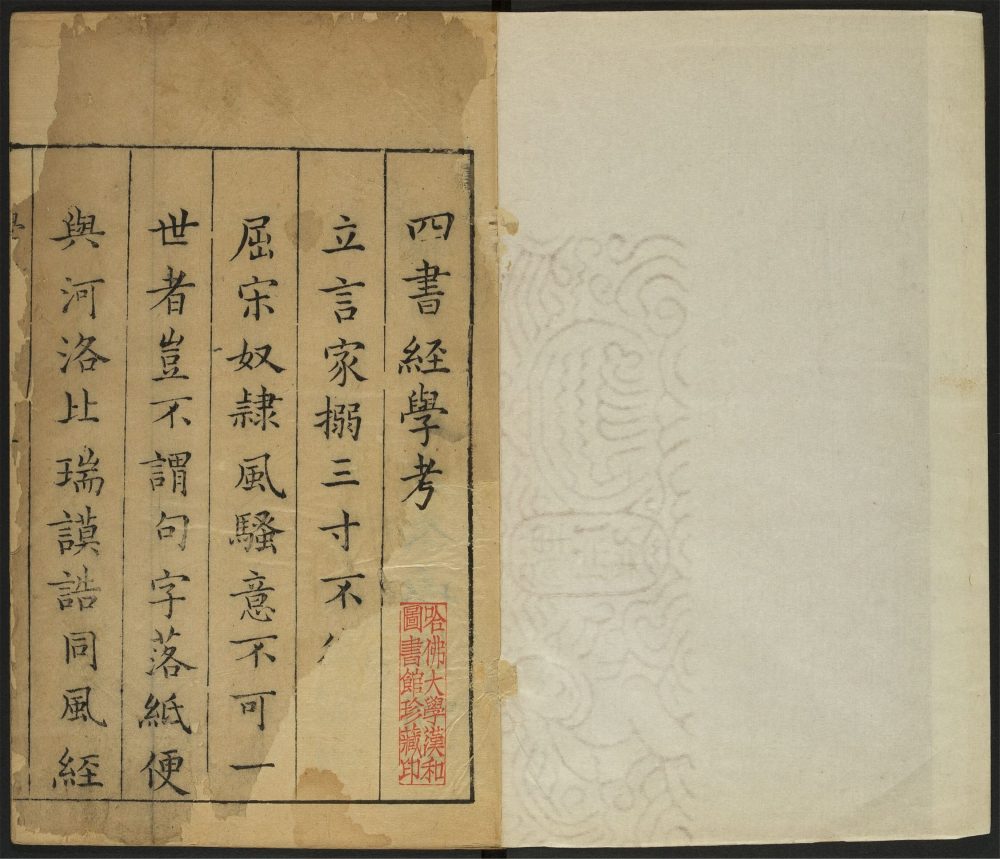 四書經學考
立言家搦三寸不
屈宋奴隷風騷意不可一
世者豈不謂句字落紙便
與河洛比瑞謨誥同風経
哈佛大學漢和
圖書館珍藏印